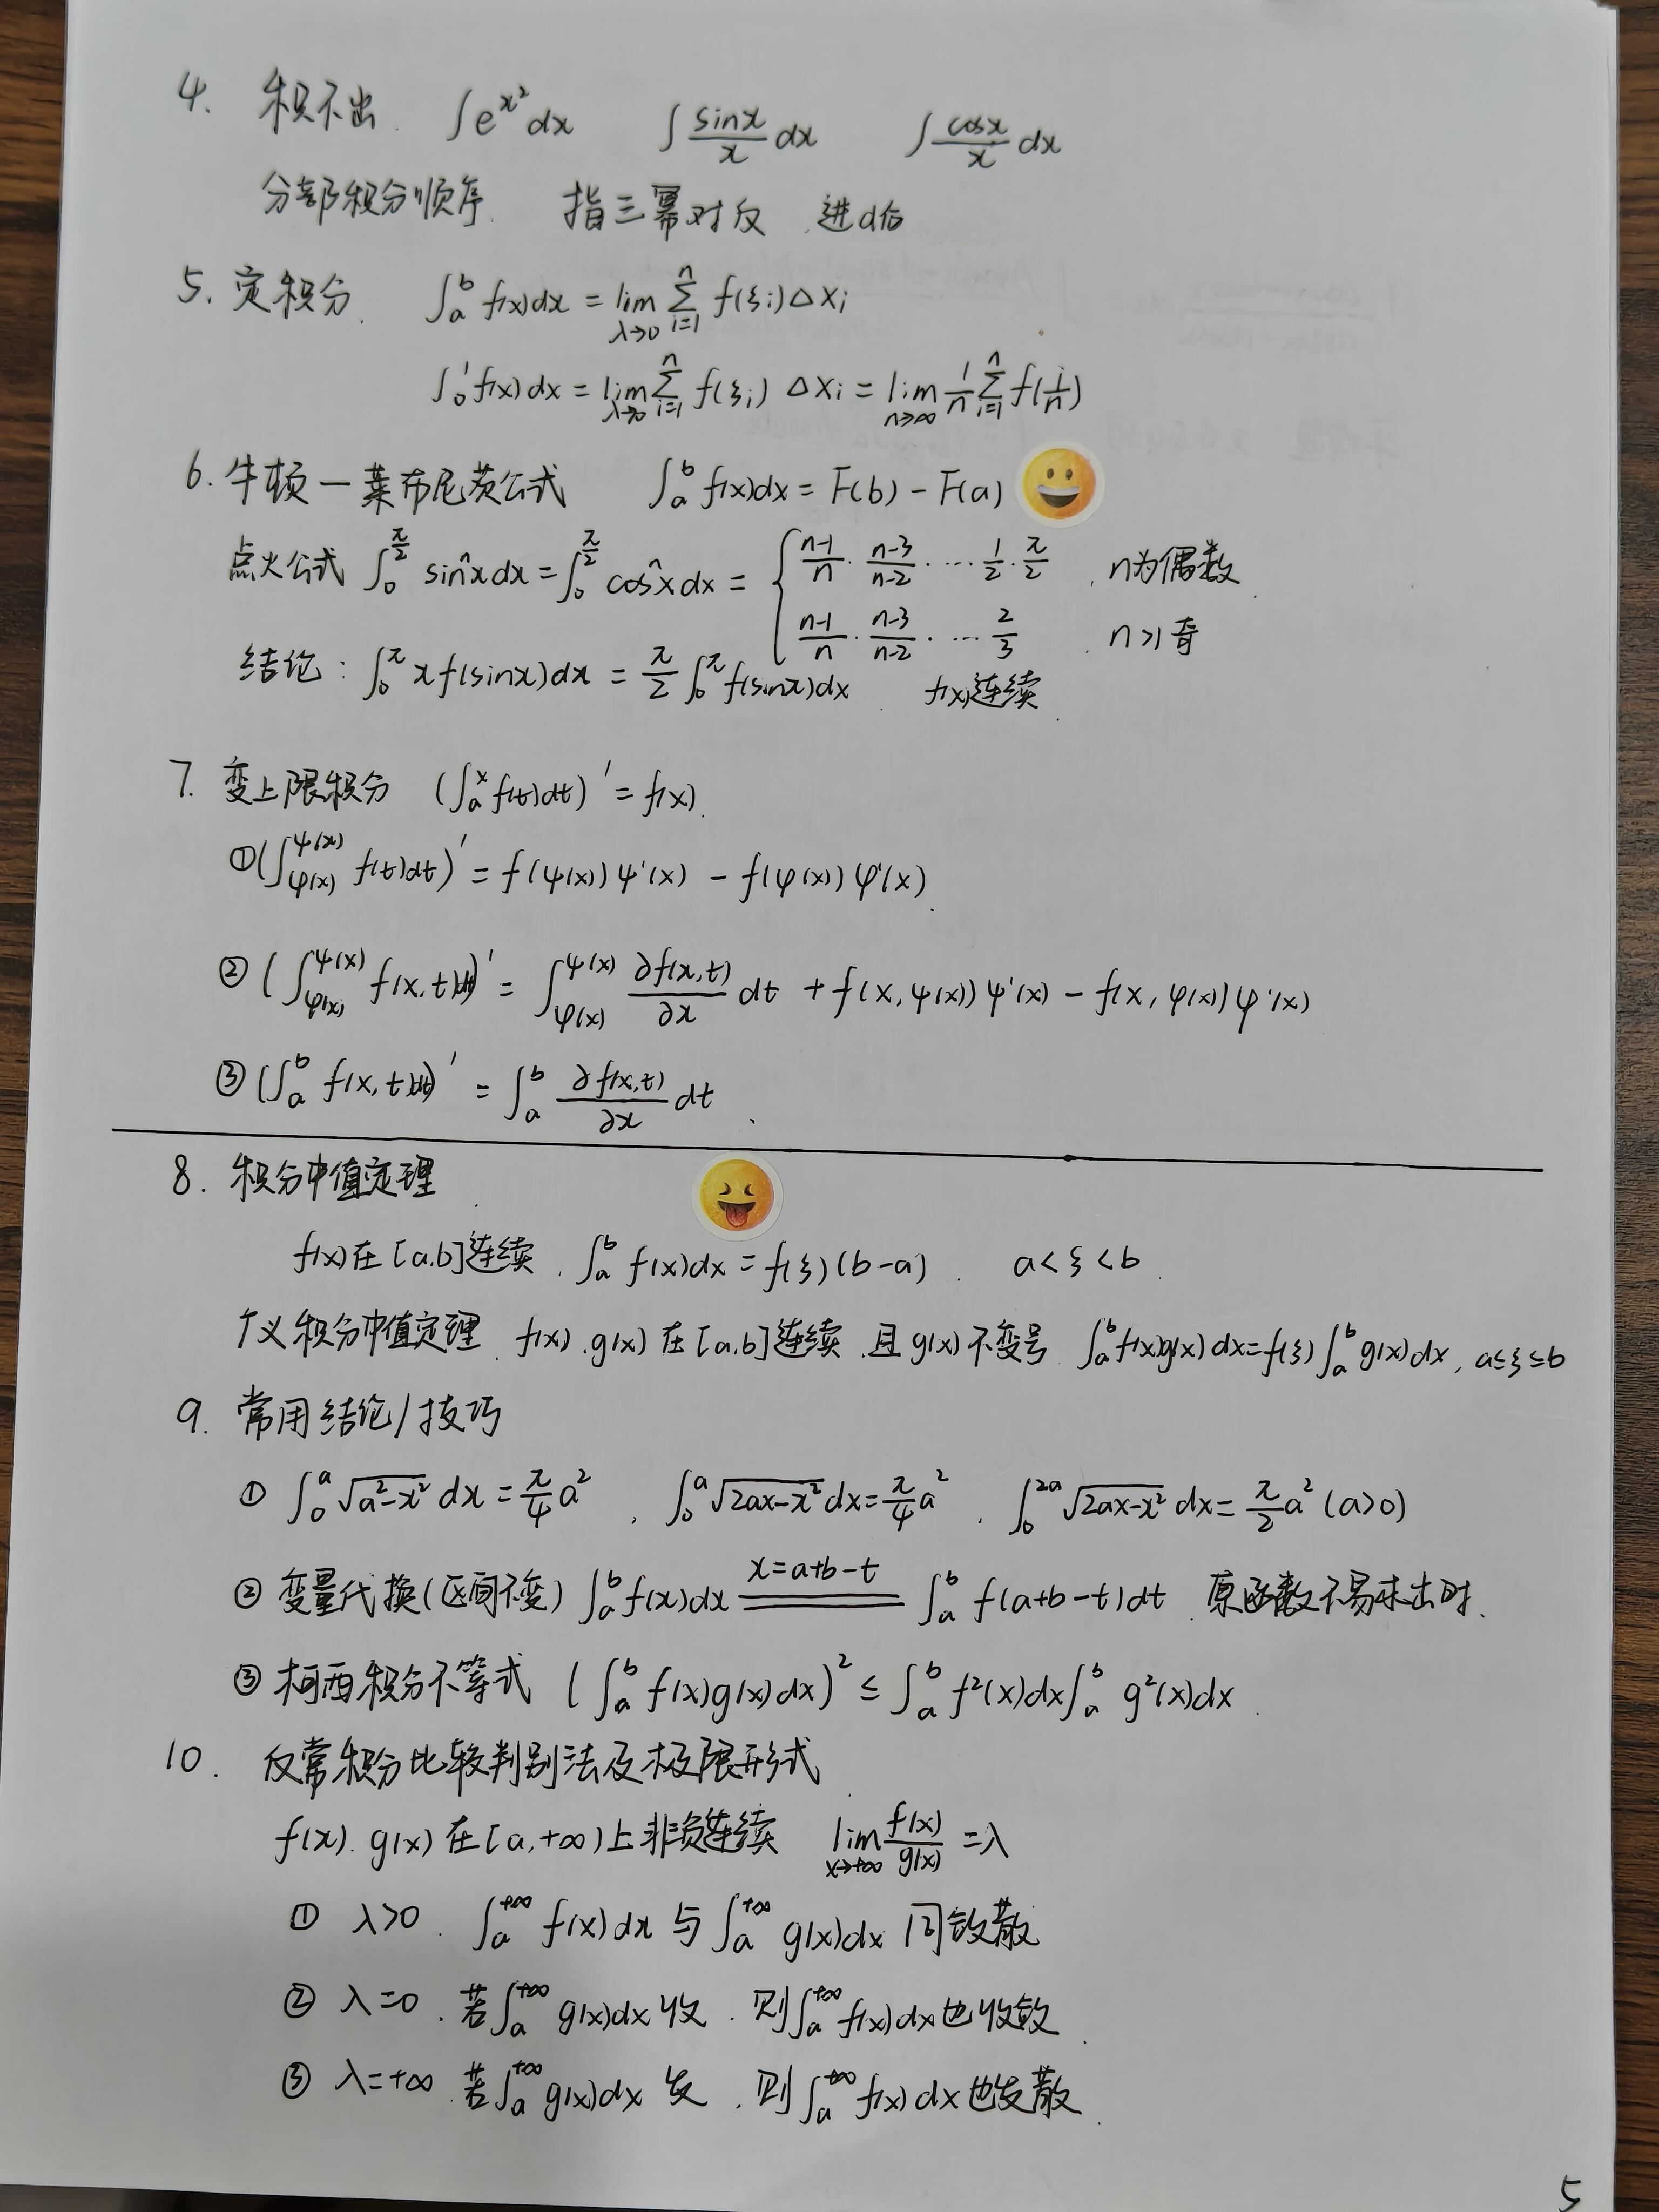 4. 积不出. ∫e^{x²}dx ∫\frac{sinx}{x}dx ∫\frac{cosx}{x}dx
分部积分顺序. 指三幂对反 . 进d后
5. 定积分. ∫_a^b f(x)dx = lim_{λ→0} Σ_{i=1}^n f(ξi)ΔXi
∫_0^1 f(x)dx = lim_{λ→0} Σ_{i=1}^n f(ξi) ΔXi = lim_{n→∞} \frac{1}{n} Σ_{i=1}^n f(\frac{i}{n})
6. 牛顿一莱布尼茨公式 ∫_a^b f(x)dx = F(b) - F(a)
点火公式 ∫_0^{\frac{π}{2}} sin^n x dx = ∫_0^{\frac{π}{2}} cos^n x dx = { \frac{n-1}{n}·\frac{n-3}{n-2}·…·\frac{1}{2}·\frac{π}{2} . n为偶数.
\frac{n-1}{n}·\frac{n-3}{n-2}·…\frac{2}{3} . n>1奇
结论: ∫_0^π x f(sinx)dx = \frac{π}{2} ∫_0^π f(sinx)dx . f(x)连续.
7. 变上限积分 (∫_a^x f(t)dt)' = f(x).
①(∫_{φ(x)}^{ψ(x)} f(t)dt)' = f(ψ(x))ψ'(x) - f(φ(x))φ'(x).
② (∫_{φ(x)}^{ψ(x)} f(x,t)dt)' = ∫_{φ(x)}^{ψ(x)} \frac{∂f(x,t)}{∂x} dt + f(x,ψ(x))ψ'(x) - f(x,φ(x))φ'(x)
③ (∫_a^b f(x,t)dt)' = ∫_a^b \frac{∂f(x,t)}{∂x} dt .
8. 积分中值定理
f(x)在[a,b]连续 . ∫_a^b f(x)dx = f(ξ)(b-a) . a<ξ<b.
广义积分中值定理. f(x).g(x)在[a,b]连续.且g(x)不变号. ∫_a^b f(x)g(x)dx=f(ξ)∫_a^b g(x)dx, a≤ξ≤b
9. 常用结论/技巧
① ∫_0^a √(a²-x²) dx = \frac{π}{4}a² . ∫_0^a √(2ax-x²) dx = \frac{π}{4}a² . ∫_0^{2a} √(2ax-x²) dx = \frac{π}{2}a² (a>0)
② 变量代换(区间不变) ∫_a^b f(x)dx \xlongequal{x=a+b-t} ∫_a^b f(a+b-t)dt . 原函数不易求出时.
③ 柯西积分不等式 (∫_a^b f(x)g(x)dx)² ≤ ∫_a^b f²(x)dx∫_a^b g²(x)dx.
10. 反常积分比较判别法及极限形式.
f(x).g(x)在[a,+∞)上非负连续 lim_{x→+∞} \frac{f(x)}{g(x)} = λ
① λ>0 . ∫_a^{+∞} f(x)dx 与 ∫_a^{+∞} g(x)dx 同敛散
② λ=0 . 若∫_a^{+∞} g(x)dx 收 . 则∫_a^{+∞} f(x)dx也收敛.
③ λ=+∞. 若∫_a^{+∞} g(x)dx 发 . 则∫_a^{+∞} f(x)dx也发散.
5